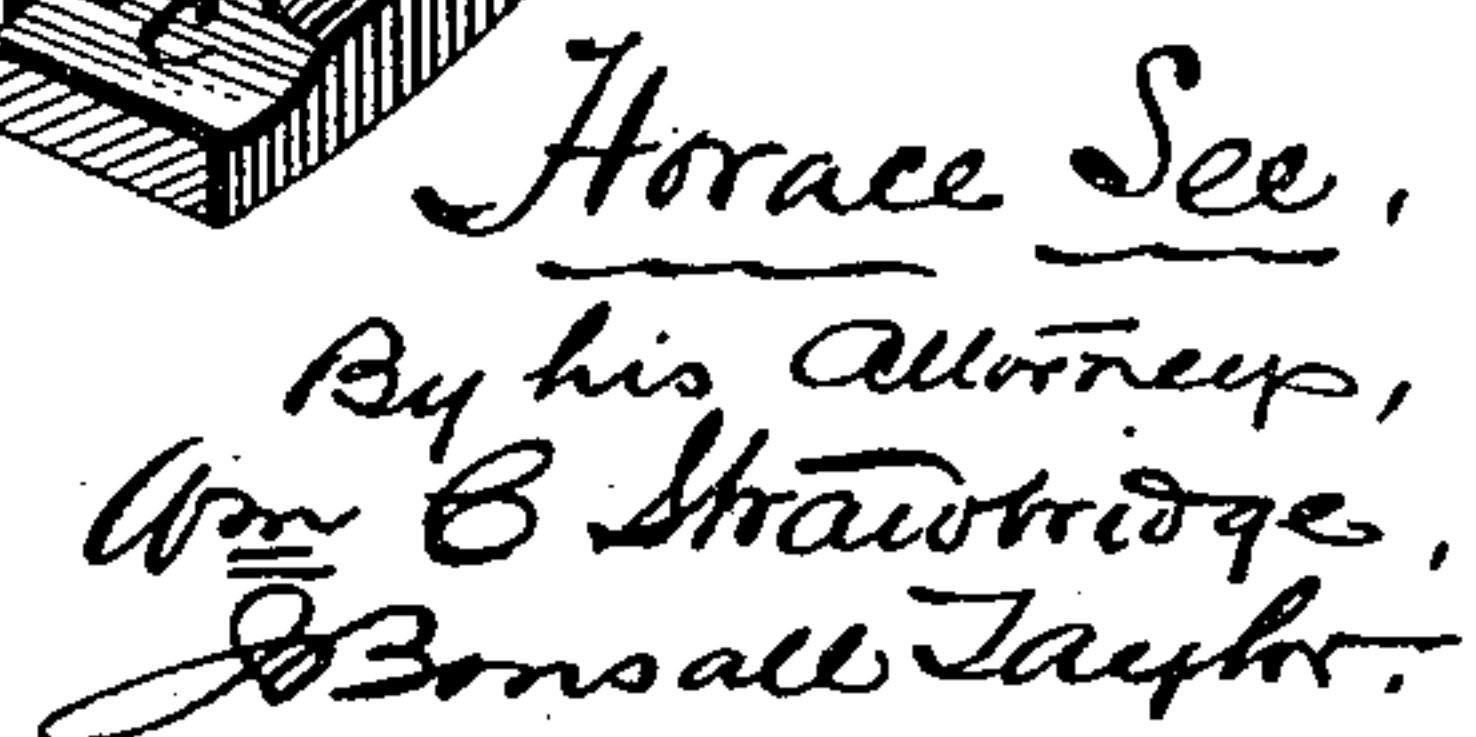 C
Horace See,
By his Attorneys,
Wm C Strawbridge,
J Bonsall Taylor.